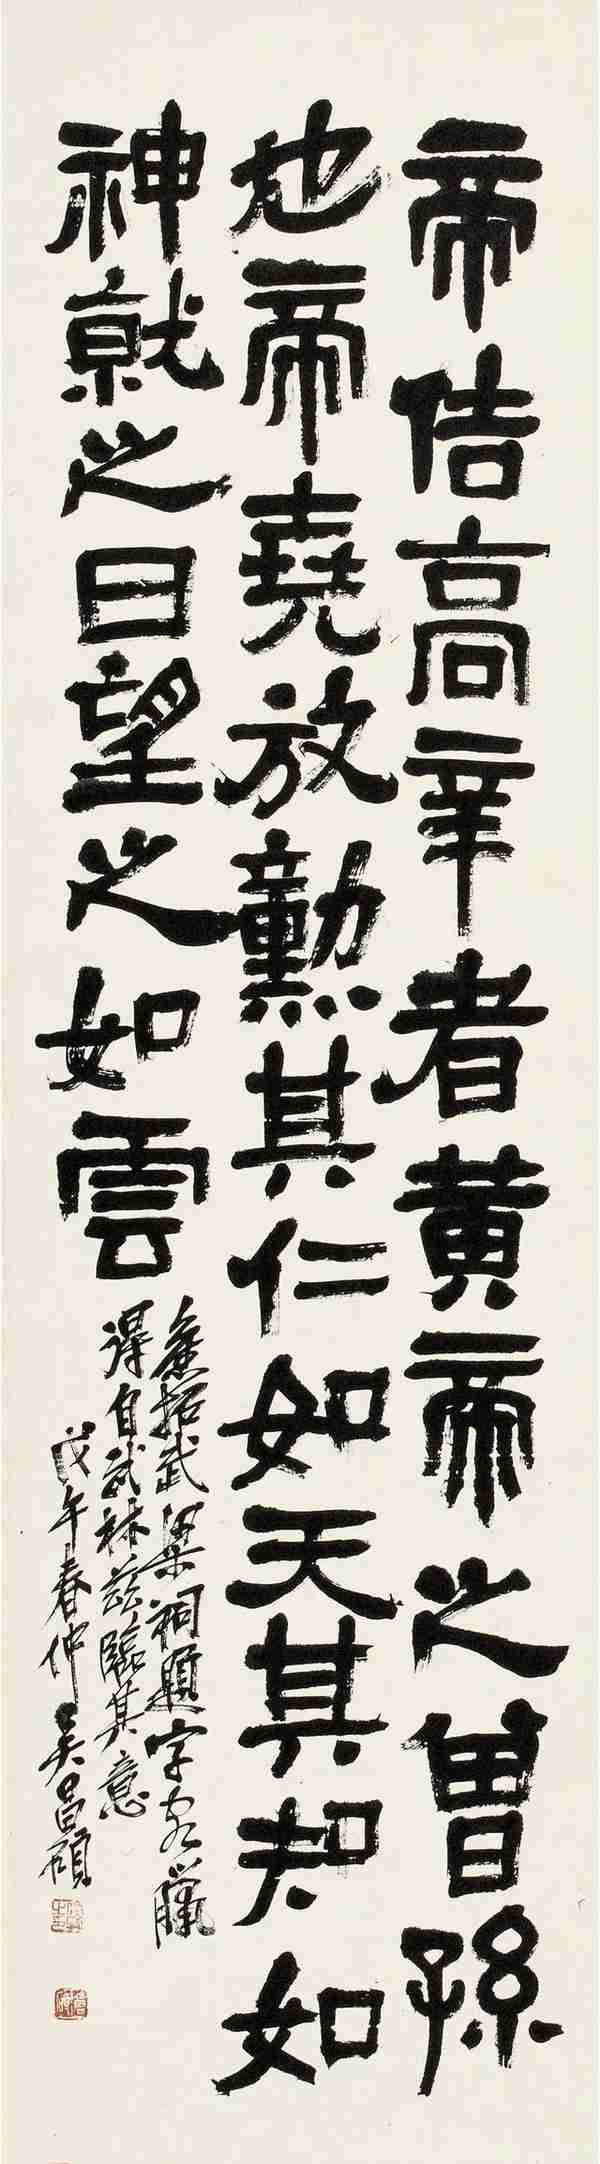 帝佶高辛者黄帝之曾孫
也帝堯放勳其仁如天其知如
神就之日望之如雲
舊拓武梁祠題字客臘
得自武林茲臨其意
戊午春仲吳昌碩